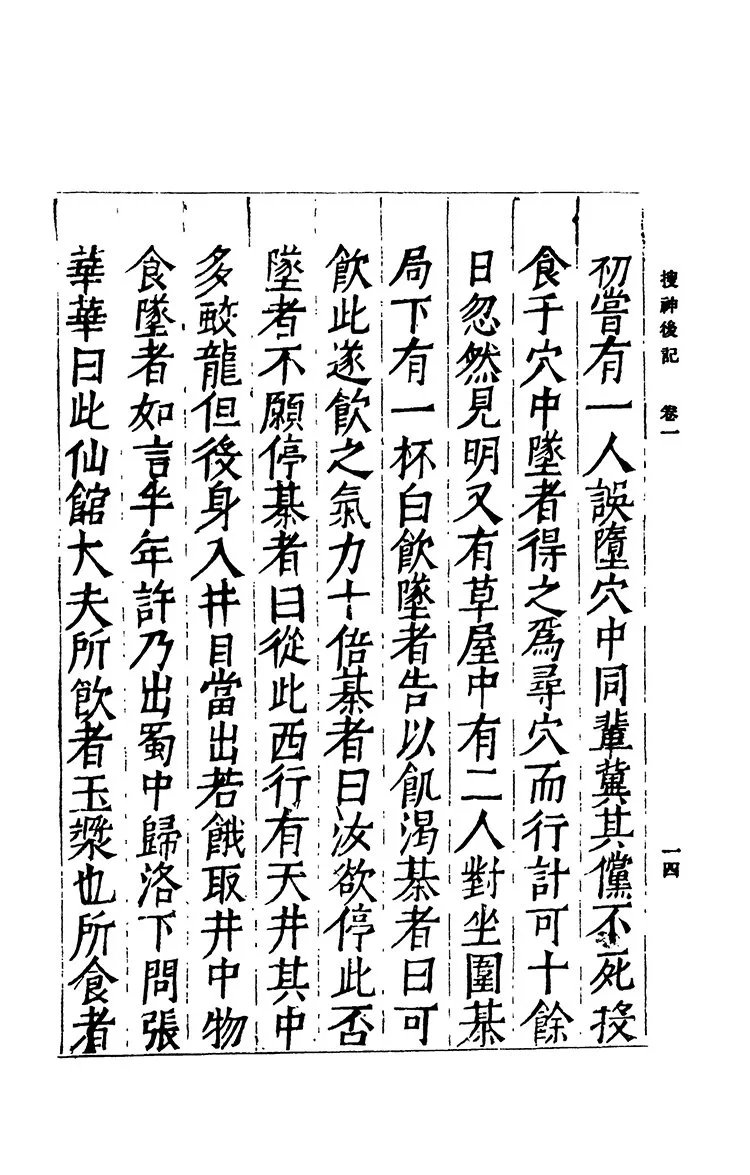 搜神後記 卷一
一四
初嘗有一人誤墮穴中同輩冀其儻不死投
食于穴中墜者得之爲尋穴而行計可十餘
日忽然見明又有草屋中有二人對坐圍棊
局下有一杯白飮墜者告以飢渴棊者曰可
飮此遂飮之氣力十倍棊者曰汝欲停此否
墜者不願停棊者曰從此西行有天井其中
多蛟龍但投身入井自當出若餓取井中物
食墜者如言半年許乃出蜀中歸洛下問張
華華曰此仙館大夫所飮者玉漿也所食者